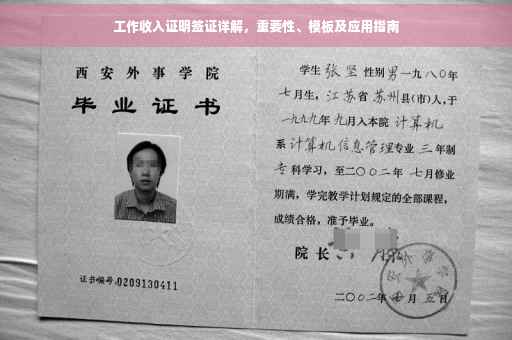 工作收入证明签证详解，重要性、模板及应用指南
西安外事学院
毕业证书
证书编号:0209130411
学生 张坚 性别 男 一九八〇年
七月生, 江苏省 苏州县(市)人, 于
一九九九年九月入本院 计算机
系 计算机信息管理专业 三年制
专科学习, 至二〇〇二年 七月修业
期满, 学完教学计划规定的全部课程,
成绩合格, 准予毕业。
院长
二〇〇二年 月五日